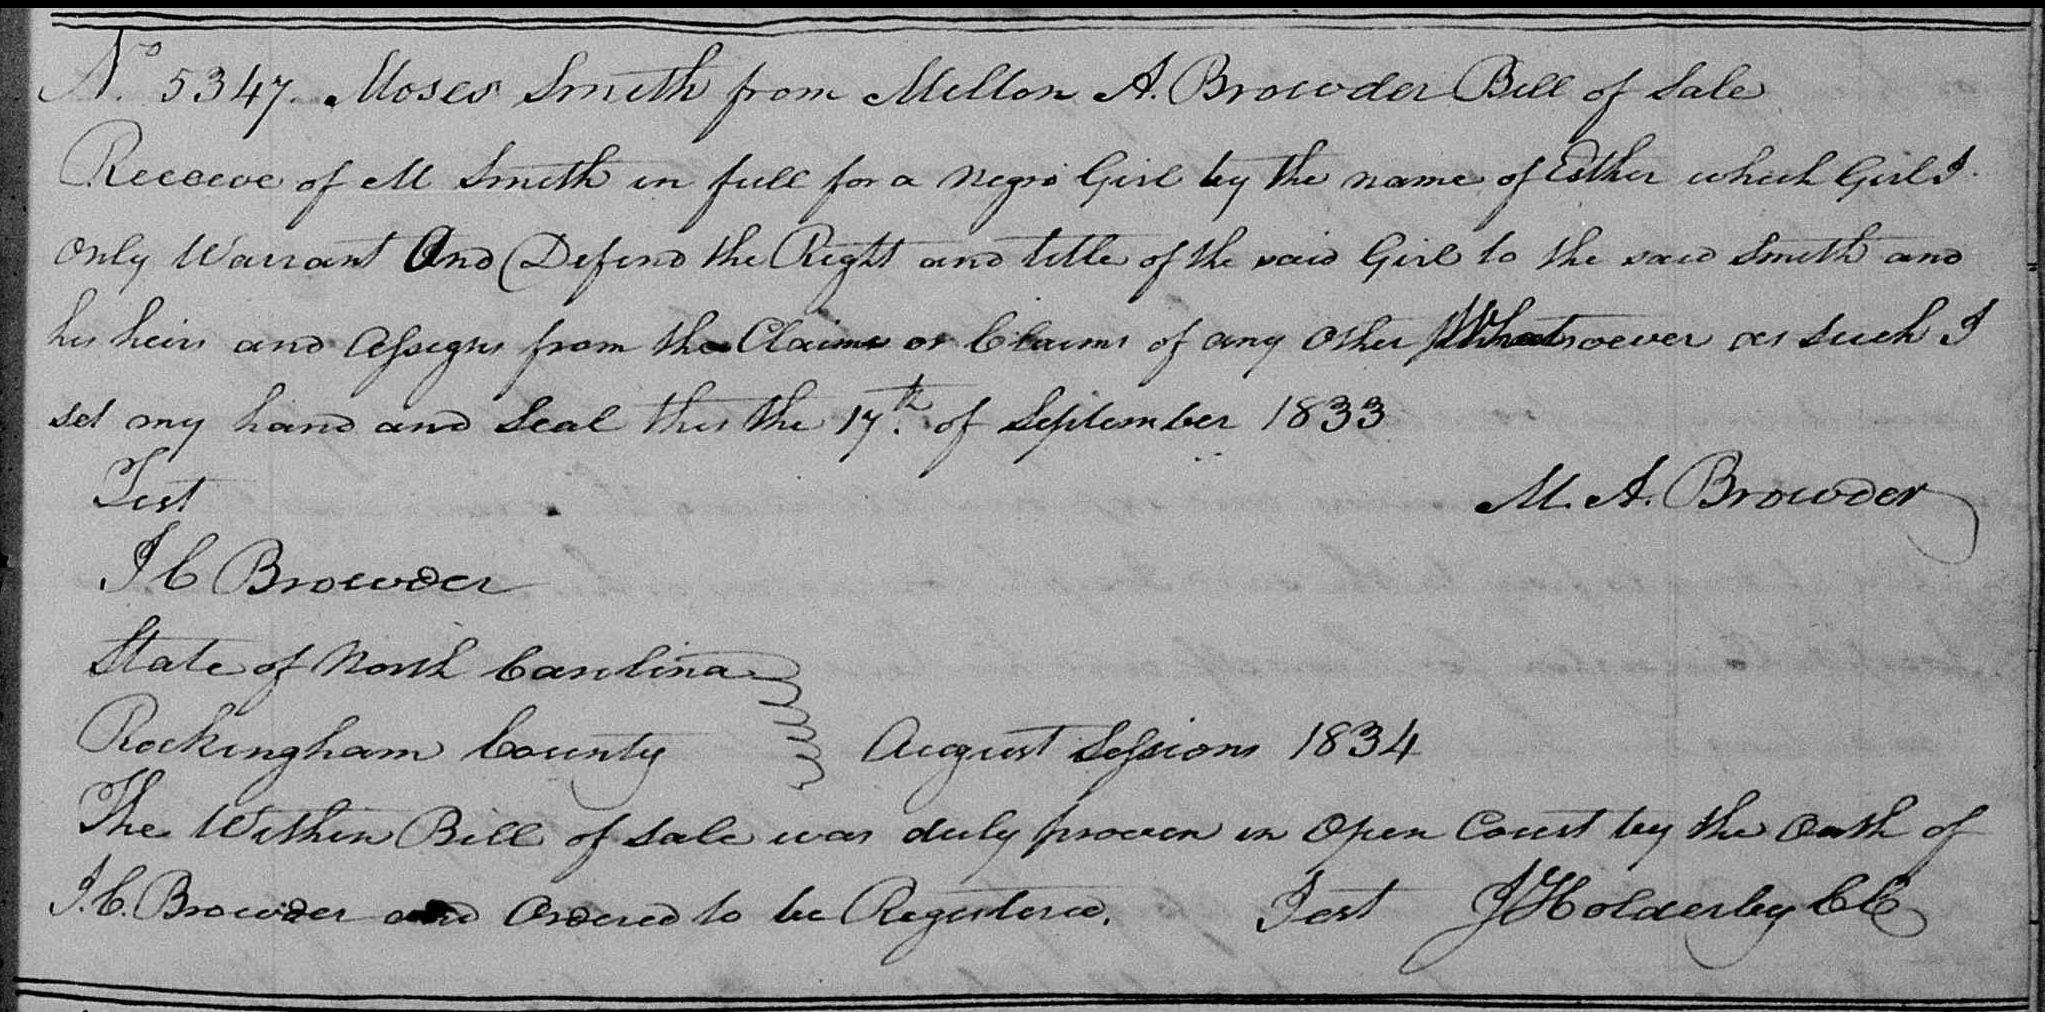 No. 5347. Moses Smith from Melton A. Browder Bill of Sale
Receeve of M Smith in full for a Negro Girl by the name of Esther which Girl I
Only Warrant And Defend the Right and title of the said Girl to the said Smith and
his heirs and Assigns from the Claims or Claims of any Other Whatsoever as such I
set my hand and Seal this the 17th. of September 1833
Test
M. A. Browder
J C Browder
State of North Carolina
Rockingham County August Sessions 1834
The Within Bill of Sale was duly proven in Open Court by the Oath of
J. C. Browder and Ordered to be Registered. Test J Holderby CC